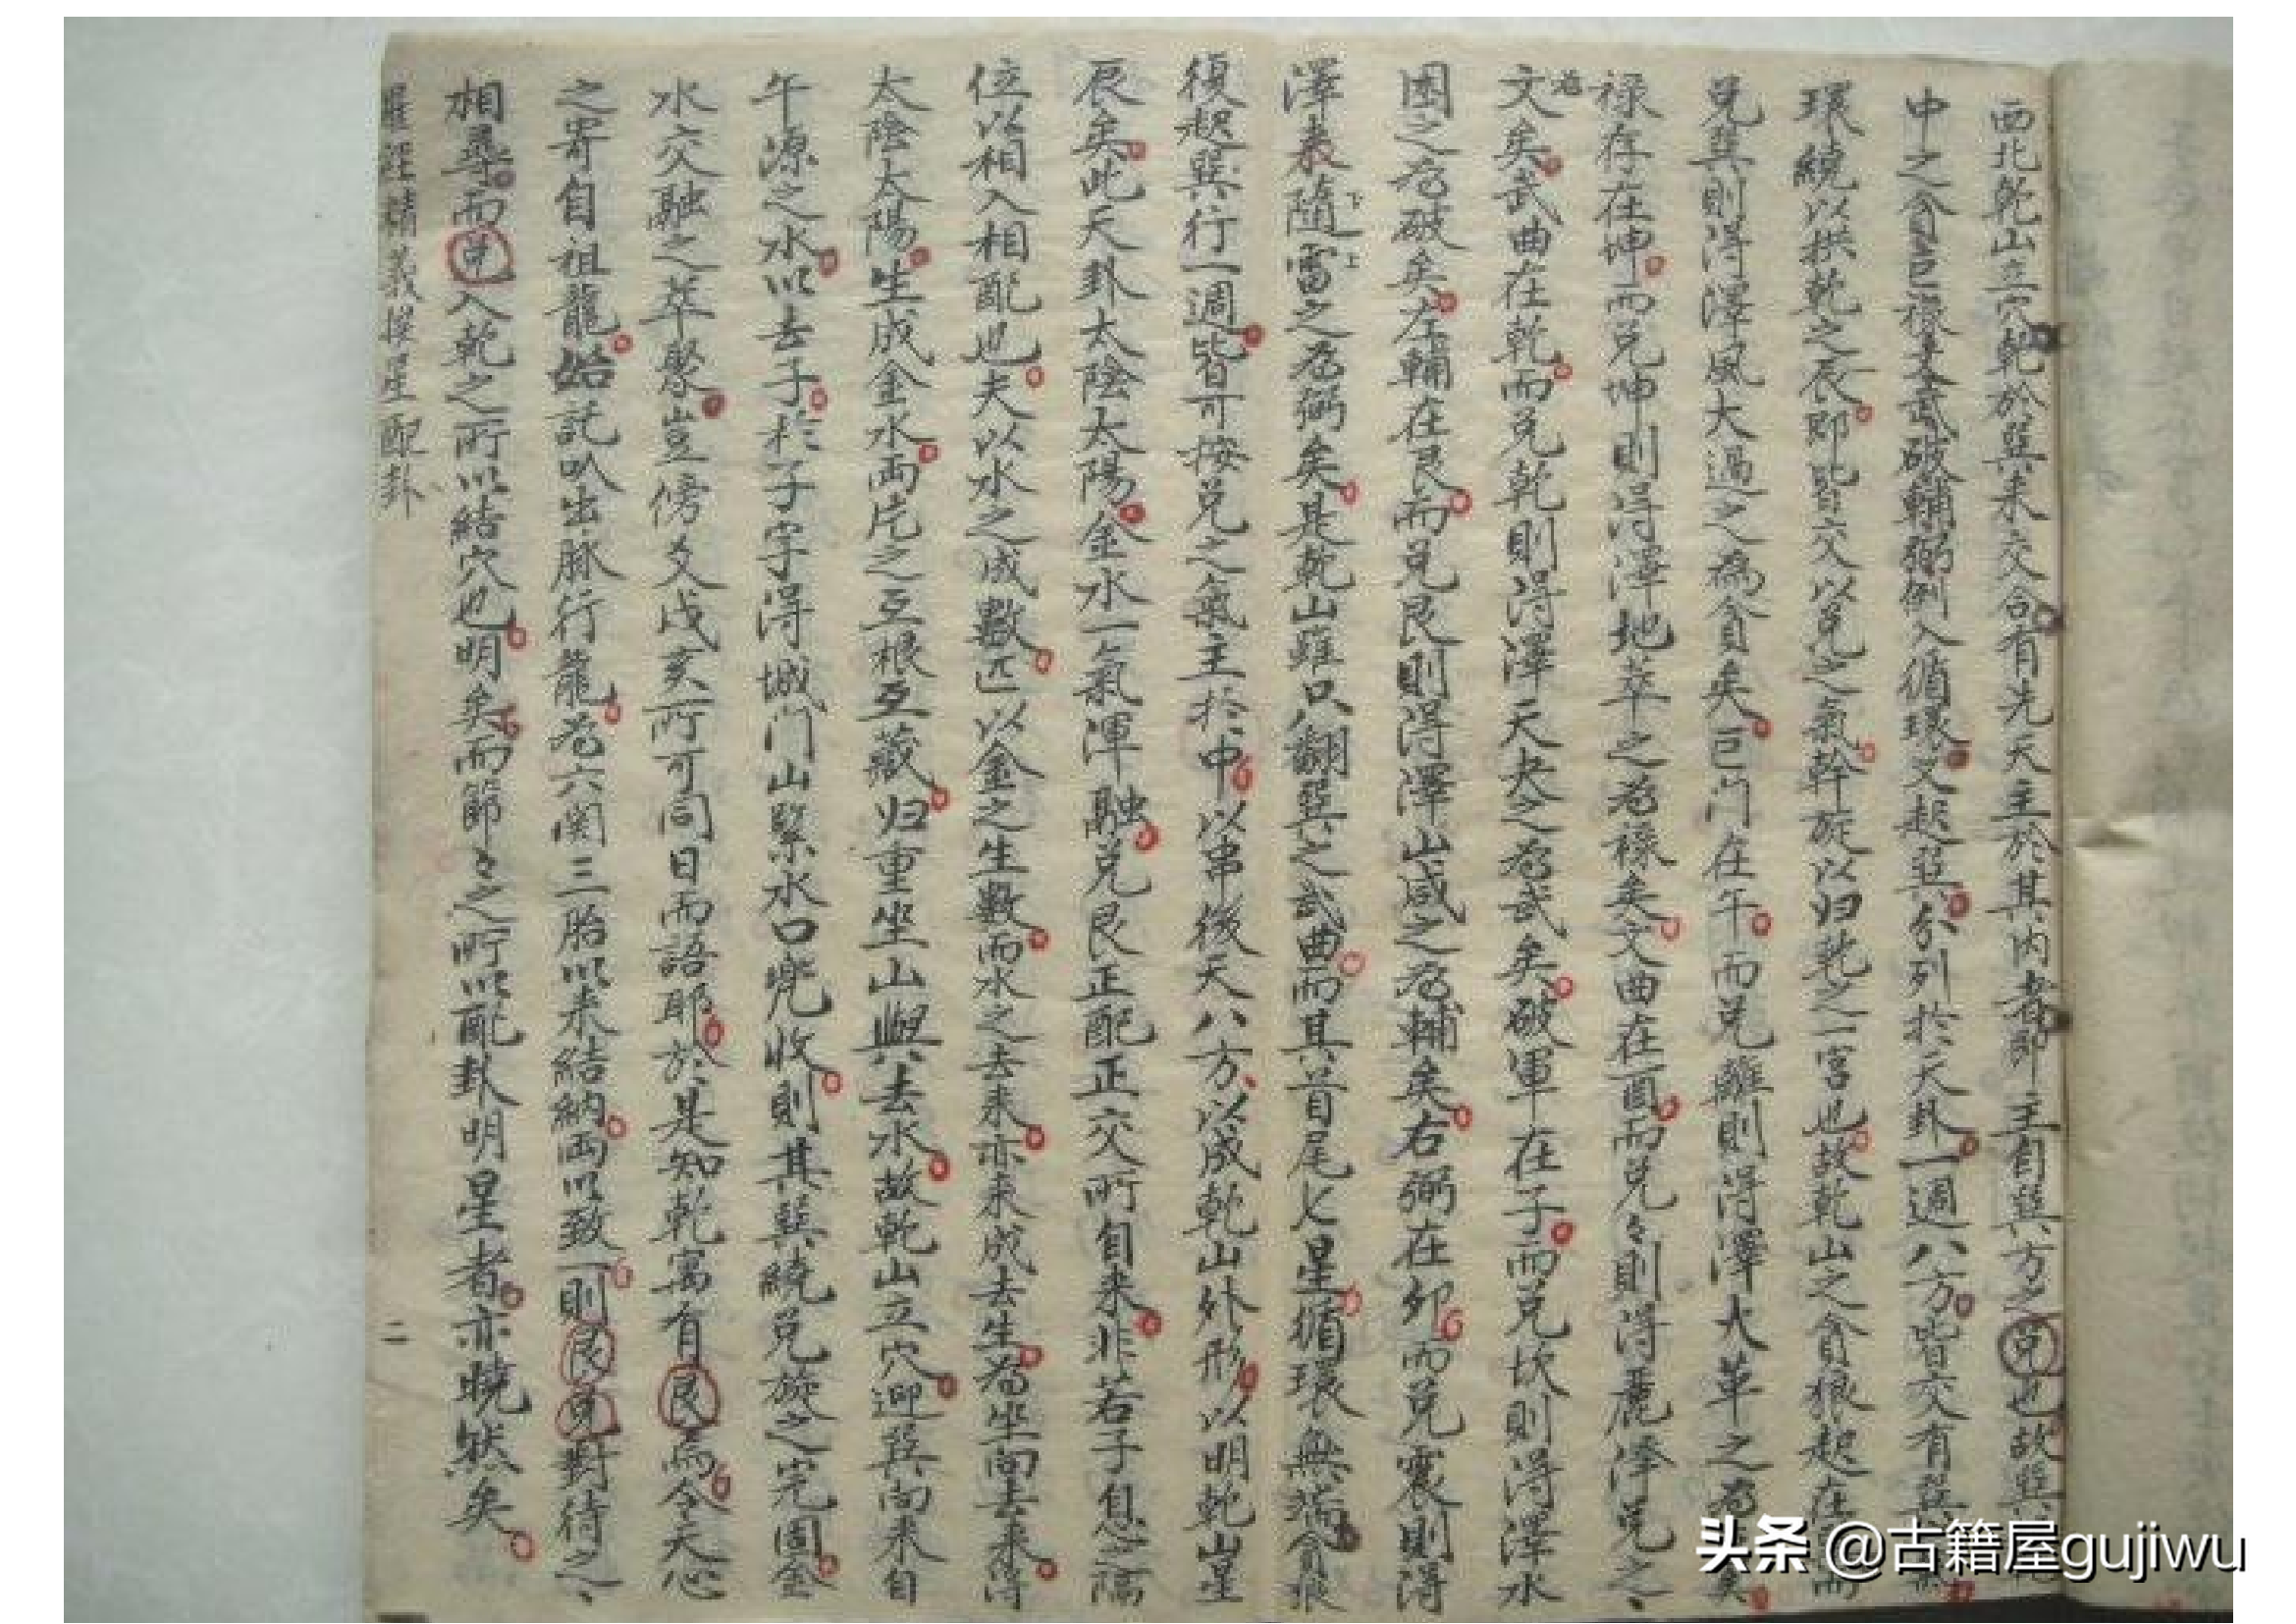 西北乾山立穴乾於巽来交合有先天主於其内者即主自巽方之兑也故巽
中之貪巨祿文武破輔弼例入循環又起巽分列於天卦一週八方皆交有巽
環繞以拱乾之辰即皆交以兑之氣幹旋以归乾之一宮也故乾山之貪狼起在
兑巽則得澤風大過之為貪矣巨门在午而兑離則得澤火革之為矣
禄存在坤而兑坤則得澤地萃之為祿矣文曲在酉而兑々則得麗泽兑之、
為文矣武曲在乾而兑乾則得澤天夬之為武矣破軍在子而兑坎則得澤水
困之為破矣左輔在艮而兑艮則得澤山咸之為輔矣右弼在卯而兑震則得
澤来隨雷之為弼矣是乾山雖只翻巽之武曲而其首尾七星循環無端貪狼
復起巽行一週皆可按兑之氣主於中以串後天八方以成乾山外形以明乾山星
辰矣此天卦太陰太陽金水一氣渾融兑艮正配正交所自来非若子息之隔
位以相入相配也夫以水之成數匹以金之生數而水之去来亦来成去生為坐向去来得
太陰太陽生成金水両片之互根互藏归重坐山與去水故乾山立穴迎巽向来自
午源之水以去子於子字得城门山緊水口兜收則其巽繞兑旋之完固金
水交融之萃聚豈傍爻戌亥所可同日而語耶於是知乾寓有艮為令天心
之寄自祖龍始託以出脉行龍為六関三胎以来結納両以致一則艮兑對待之、
相尋而兑入乾之所以結穴也明矣而節々之所以配卦明星者亦曉然矣
羅經精義撥星配卦
二
头条 @古籍屋gujiwu